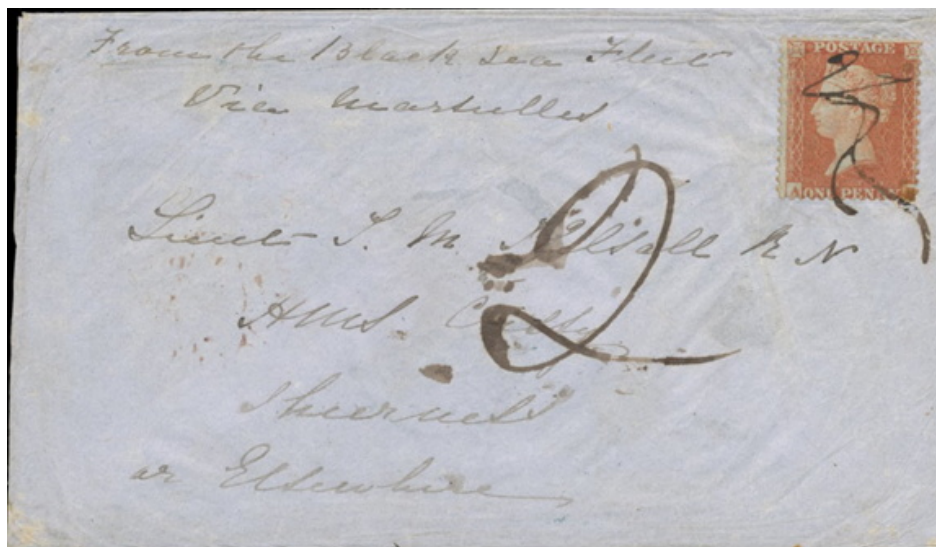 From the Black Sea Fleet
Via Marseilles
POSTAGE
ONE PENNY
2
Lieut S. M. R N
HMS
Sheerness
or Elsewhere